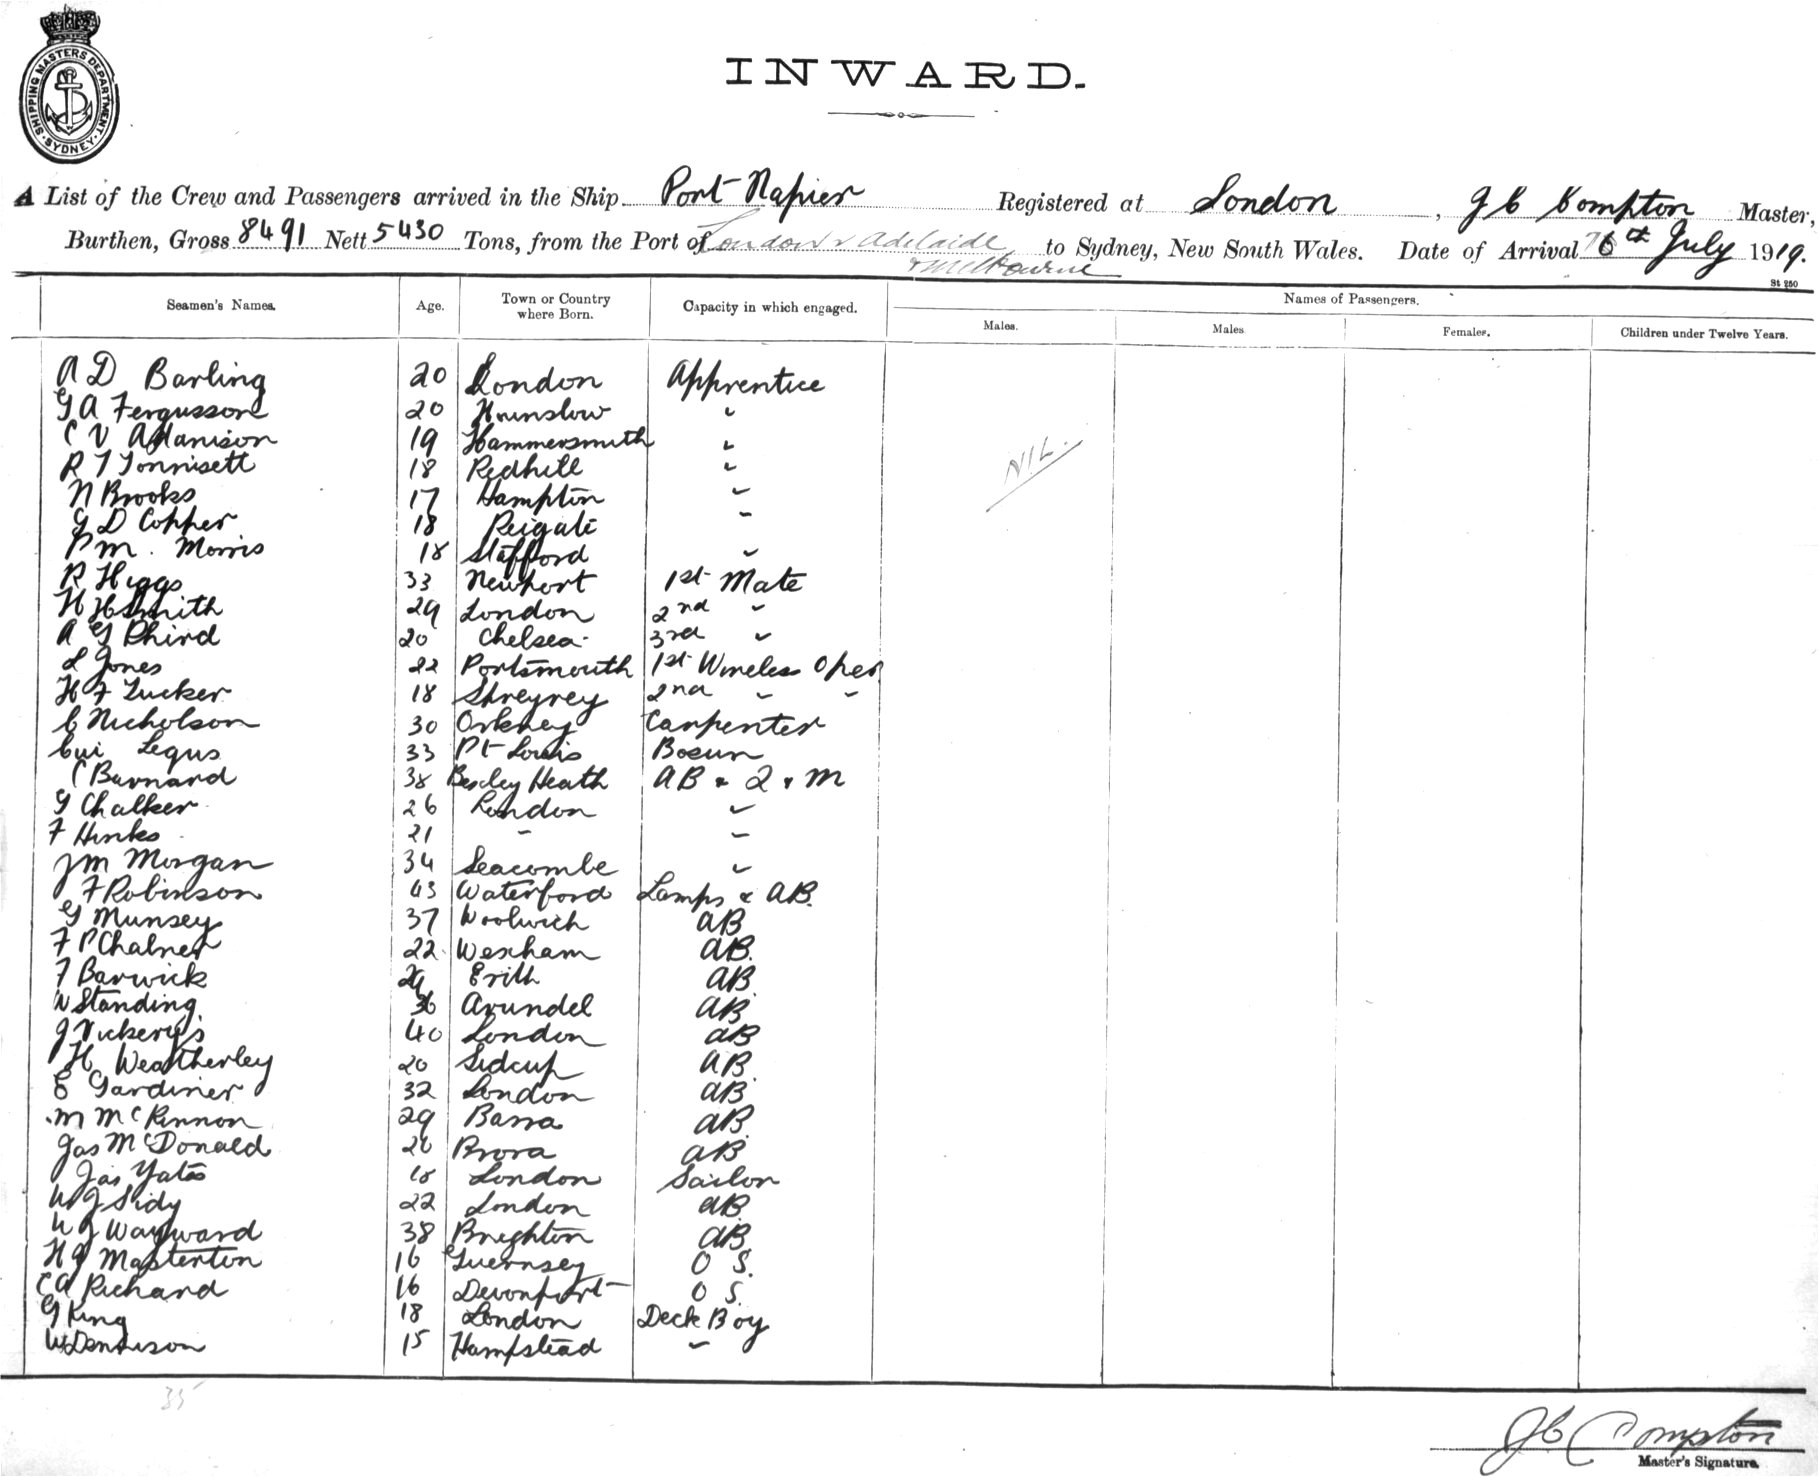 SHIPPING MASTERS DEPARTMENT SYDNEY
INWARD.
A List of the Crew and Passengers arrived in the Ship Port Napier Registered at London, J C Compton Master,
Burthen, Gross 8491 Nett 5430 Tons, from the Port of London & Adelaide to Sydney, New South Wales. Date of Arrival 6th July 1919.
& Melbourne
St 250
Seamen's Names. Age. Town or Country where Born. Capacity in which engaged. Names of Passengers.
Males. Males Females. Children under Twelve Years.
A D Barling 20 London Apprentice
G A Fergusson 20 Hounslow "
C V Adamison 19 Hammersmith "
NIL.
R T Tonnisett 18 Redhill "
N Brooks 17 Hampton "
G D Copper 18 Reigate "
P M. Morris 18 Stafford "
R Higgs 33 Newport 1st Mate
H H Smith 29 London 2nd "
A G Phird 20 Chelsea 3rd "
L Jones 22 Portsmouth 1st Wireless Oper
H F Tucker 18 2nd " "
C Nicholson 30 Orkney Carpenter
Cui Lequs 33 Pt Louis Bosun
C Barnard 38 Bexley Heath AB & Q & M
G Chalker 26 London "
F Hinks 21 " "
J M Morgan 34 Seacombe "
F Robinson 43 Waterford Lamps & AB.
G Munsey 37 Woolwich AB
F P Chalner 22 Wexham AB.
F Barwick 29 Erith AB
W Standing 36 Arundel AB
J Vickerys 40 London AB
H Weatherley 20 Sidcup AB.
E Gardiner 32 London AB
M McKinnon 29 Barra AB
Jas McDonald 26 Brora AB
Jas Yates 18 London Sailor
W J Sidy 22 London AB.
W J Wayward 38 Brighton AB
H J Masterton 16 Guernsey O S.
C A Richard 16 Devonport O S.
G King 18 London Deck Boy
W Dennison 15 Hampstead "
35
J C Compton
Master's Signature.